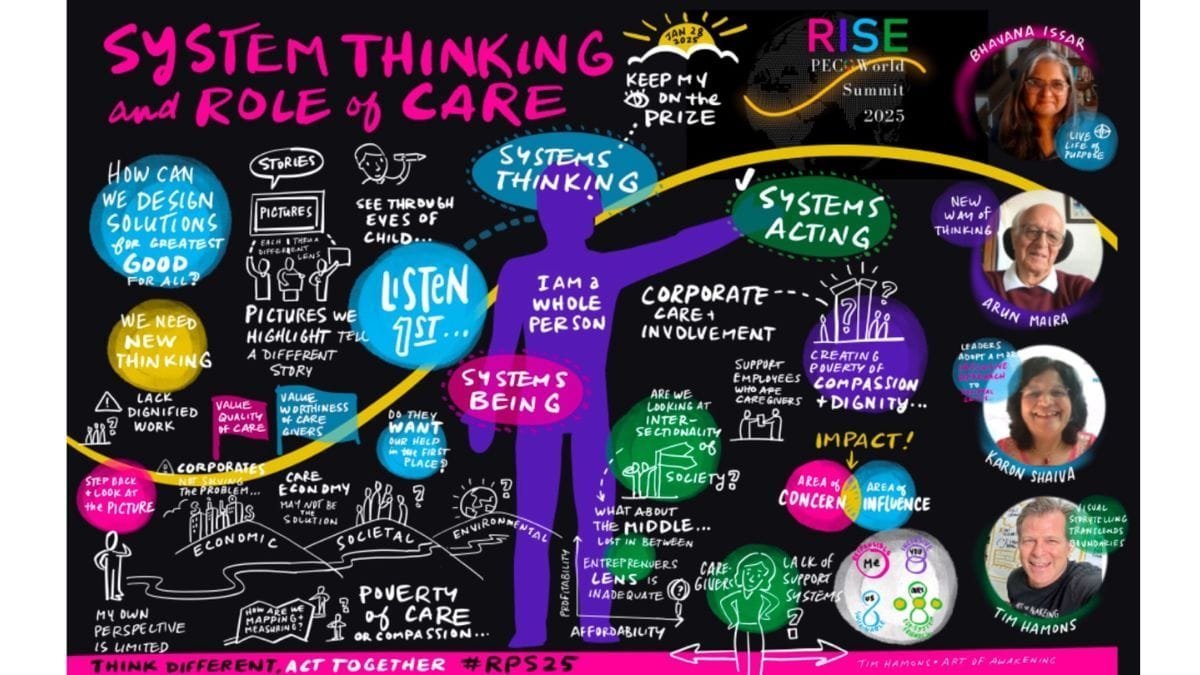 SYSTEM THINKING
and ROLE of CARE
JAN 28
2025
KEEP MY
ON the
PRIZE
RISE
World
Summit
2025
BHAVANA ISSAR
LIVE
LIFE of
PURPOSE
HOW CAN
WE DESIGN
SOLUTIONS
for GREATEST
GOOD
FOR ALL?
STORIES
PICTURES
EACH THRU A
DIFFERENT
LENS
PICTURES WE
HIGHLIGHT TELL
A DIFFERENT
STORY
SEE THROUGH
EYES OF
CHILD...
LISTEN
1ST...
SYSTEMS
THINKING
SYSTEMS
ACTING
I AM a
WHOLE
PERSON
SYSTEMS
BEING
NEW
WAY of
THINKING
ARUN MAIRA
WE NEED
NEW
THINKING
LACK
DIGNIFIED
WORK
?
VALUE
QUALITY
OF CARE
VALUE
WORTHINESS
OF CARE
GIVERS
DO THEY
WANT
OUR HELP
in the FIRST
PLACE?
CORPORATE
CARE +
INVOLVEMENT
? ?
CREATING
POVERTY OF
COMPASSION
+ DIGNITY...
SUPPORT
EMPLOYEES
WHO ARE
CAREGIVERS
LEADERS
ADOPT A MORE
KARON SHAIVA
ARE WE
LOOKING AT
INTER-
SECTIONALITY
of
SOCIETY?
IMPACT!
AREA of
CONCERN
AREA of
INFLUENCE
STEP BACK
+ LOOK AT
the PICTURE
CORPORATES
NOT SOLVING
THE PROBLEM...
CARE
ECONOMY
MAY NOT BE
THE
SOLUTION
?
?
ECONOMIC
SOCIETAL
ENVIRONMENTAL
WHAT ABOUT
THE MIDDLE...
LOST IN BETWEEN
ENTREPRENUERS
LENS IS
INADEQUATE
?
PROFITABILITY
AFFORDABILITY
CARE-
GIVERS
LACK OF
SUPPORT
SYSTEMS
?
RESPONSIBLE
ME
YOU
US
VISUAL
STORYTELLING
TRANSCENDS
BOUNDARIES
TIM HAMONS
MY OWN
PERSPECTIVE
IS LIMITED
HOW ARE WE
MAPPING +
MEASURING?
?
POVERTY
of CARE
OR COMPASSION...
THINK DIFFERENT, ACT TOGETHER #RPS25
TIM HAMONS • ART OF AWAKENING